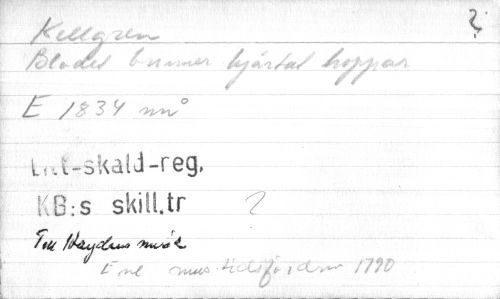 Kellgren ?
Blodet brinner hjärtat hoppar
E 1834 nn°
Litt-skald-reg.
KB:s skill.tr ?
Till Haydns musik
Enl mus tidsfördriv 1790